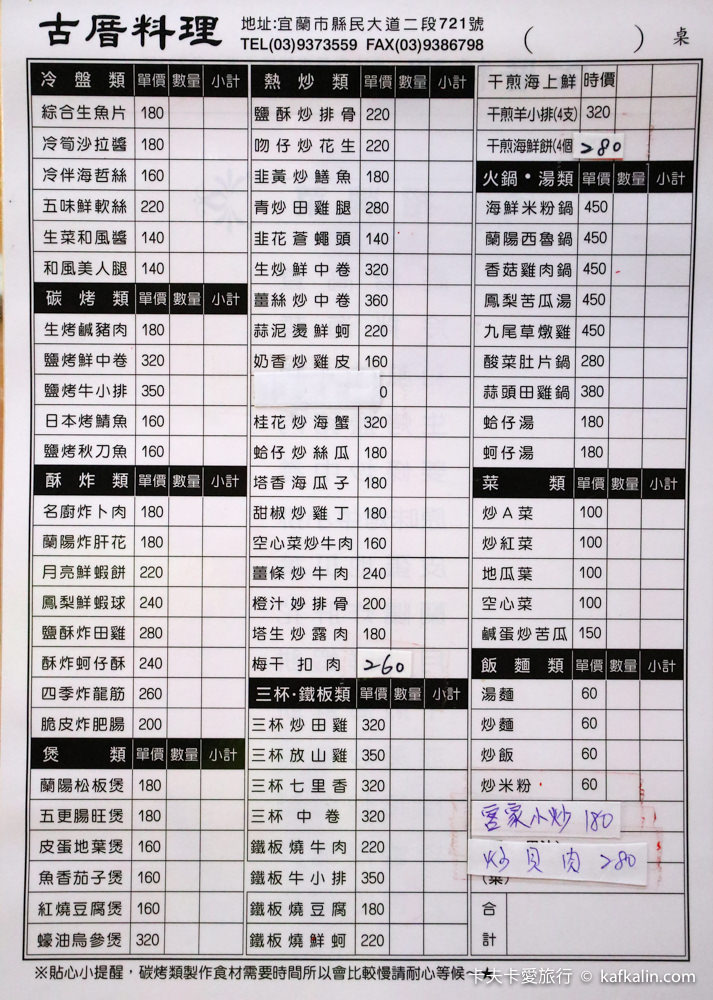 古厝料理
地址:宜蘭市縣民大道二段721號
TEL(03)9373559 FAX(03)9386798
( ) 桌
冷盤類 單價 數量 小計
綜合生魚片 180
冷筍沙拉醬 180
冷伴海哲絲 160
五味鮮軟絲 220
生菜和風醬 140
和風美人腿 140
碳烤類 單價 數量 小計
生烤鹹豬肉 180
鹽烤鮮中卷 320
鹽烤牛小排 350
日本烤鯖魚 160
鹽烤秋刀魚 160
酥炸類 單價 數量 小計
名廚炸卜肉 180
蘭陽炸肝花 180
月亮鮮蝦餅 220
鳳梨鮮蝦球 240
鹽酥炸田雞 280
酥炸蚵仔酥 240
四季炸龍筋 260
脆皮炸肥腸 200
煲類 單價 數量 小計
蘭陽松板煲 180
五更腸旺煲 180
皮蛋地葉煲 160
魚香茄子煲 160
紅燒豆腐煲 160
蠔油烏參煲 320
熱炒類 單價 數量 小計
鹽酥炒排骨 220
吻仔炒花生 220
韭黃炒鱔魚 180
青炒田雞腿 280
韭花蒼蠅頭 140
生炒鮮中卷 320
薑絲炒中卷 360
蒜泥燙鮮蚵 220
奶香炒雞皮 160
0
桂花炒海蟹 320
蛤仔炒絲瓜 180
塔香海瓜子 180
甜椒炒雞丁 180
空心菜炒牛肉 160
薑條炒牛肉 240
橙汁妙排骨 200
塔生炒露肉 180
梅干扣肉 260
三杯·鐵板類 單價 數量 小計
三杯炒田雞 320
三杯放山雞 350
三杯七里香 320
三杯中卷 320
鐵板燒牛肉 220
鐵板牛小排 350
鐵板燒豆腐 180
鐵板燒鮮蚵 220
干煎海上鮮 時價
干煎羊小排(4支) 320
干煎海鮮餅(4個 280
火鍋·湯類 單價 數量 小計
海鮮米粉鍋 450
蘭陽西魯鍋 450
香菇雞肉鍋 450
鳳梨苦瓜湯 450
九尾草燉雞 450
酸菜肚片鍋 280
蒜頭田雞鍋 380
蛤仔湯 180
蚵仔湯 180
菜類 單價 數量 小計
炒A菜 100
炒紅菜 100
地瓜葉 100
空心菜 100
鹹蛋炒苦瓜 150
飯麵類 單價 數量 小計
湯麵 60
炒麵 60
炒飯 60
炒米粉 60
客家小炒 180
炒貝肉 280
合
計
※貼心小提醒，碳烤類製作食材需要時間所以會比較慢請耐心等候~★
卡夫卡愛旅行 © kafkalin.com